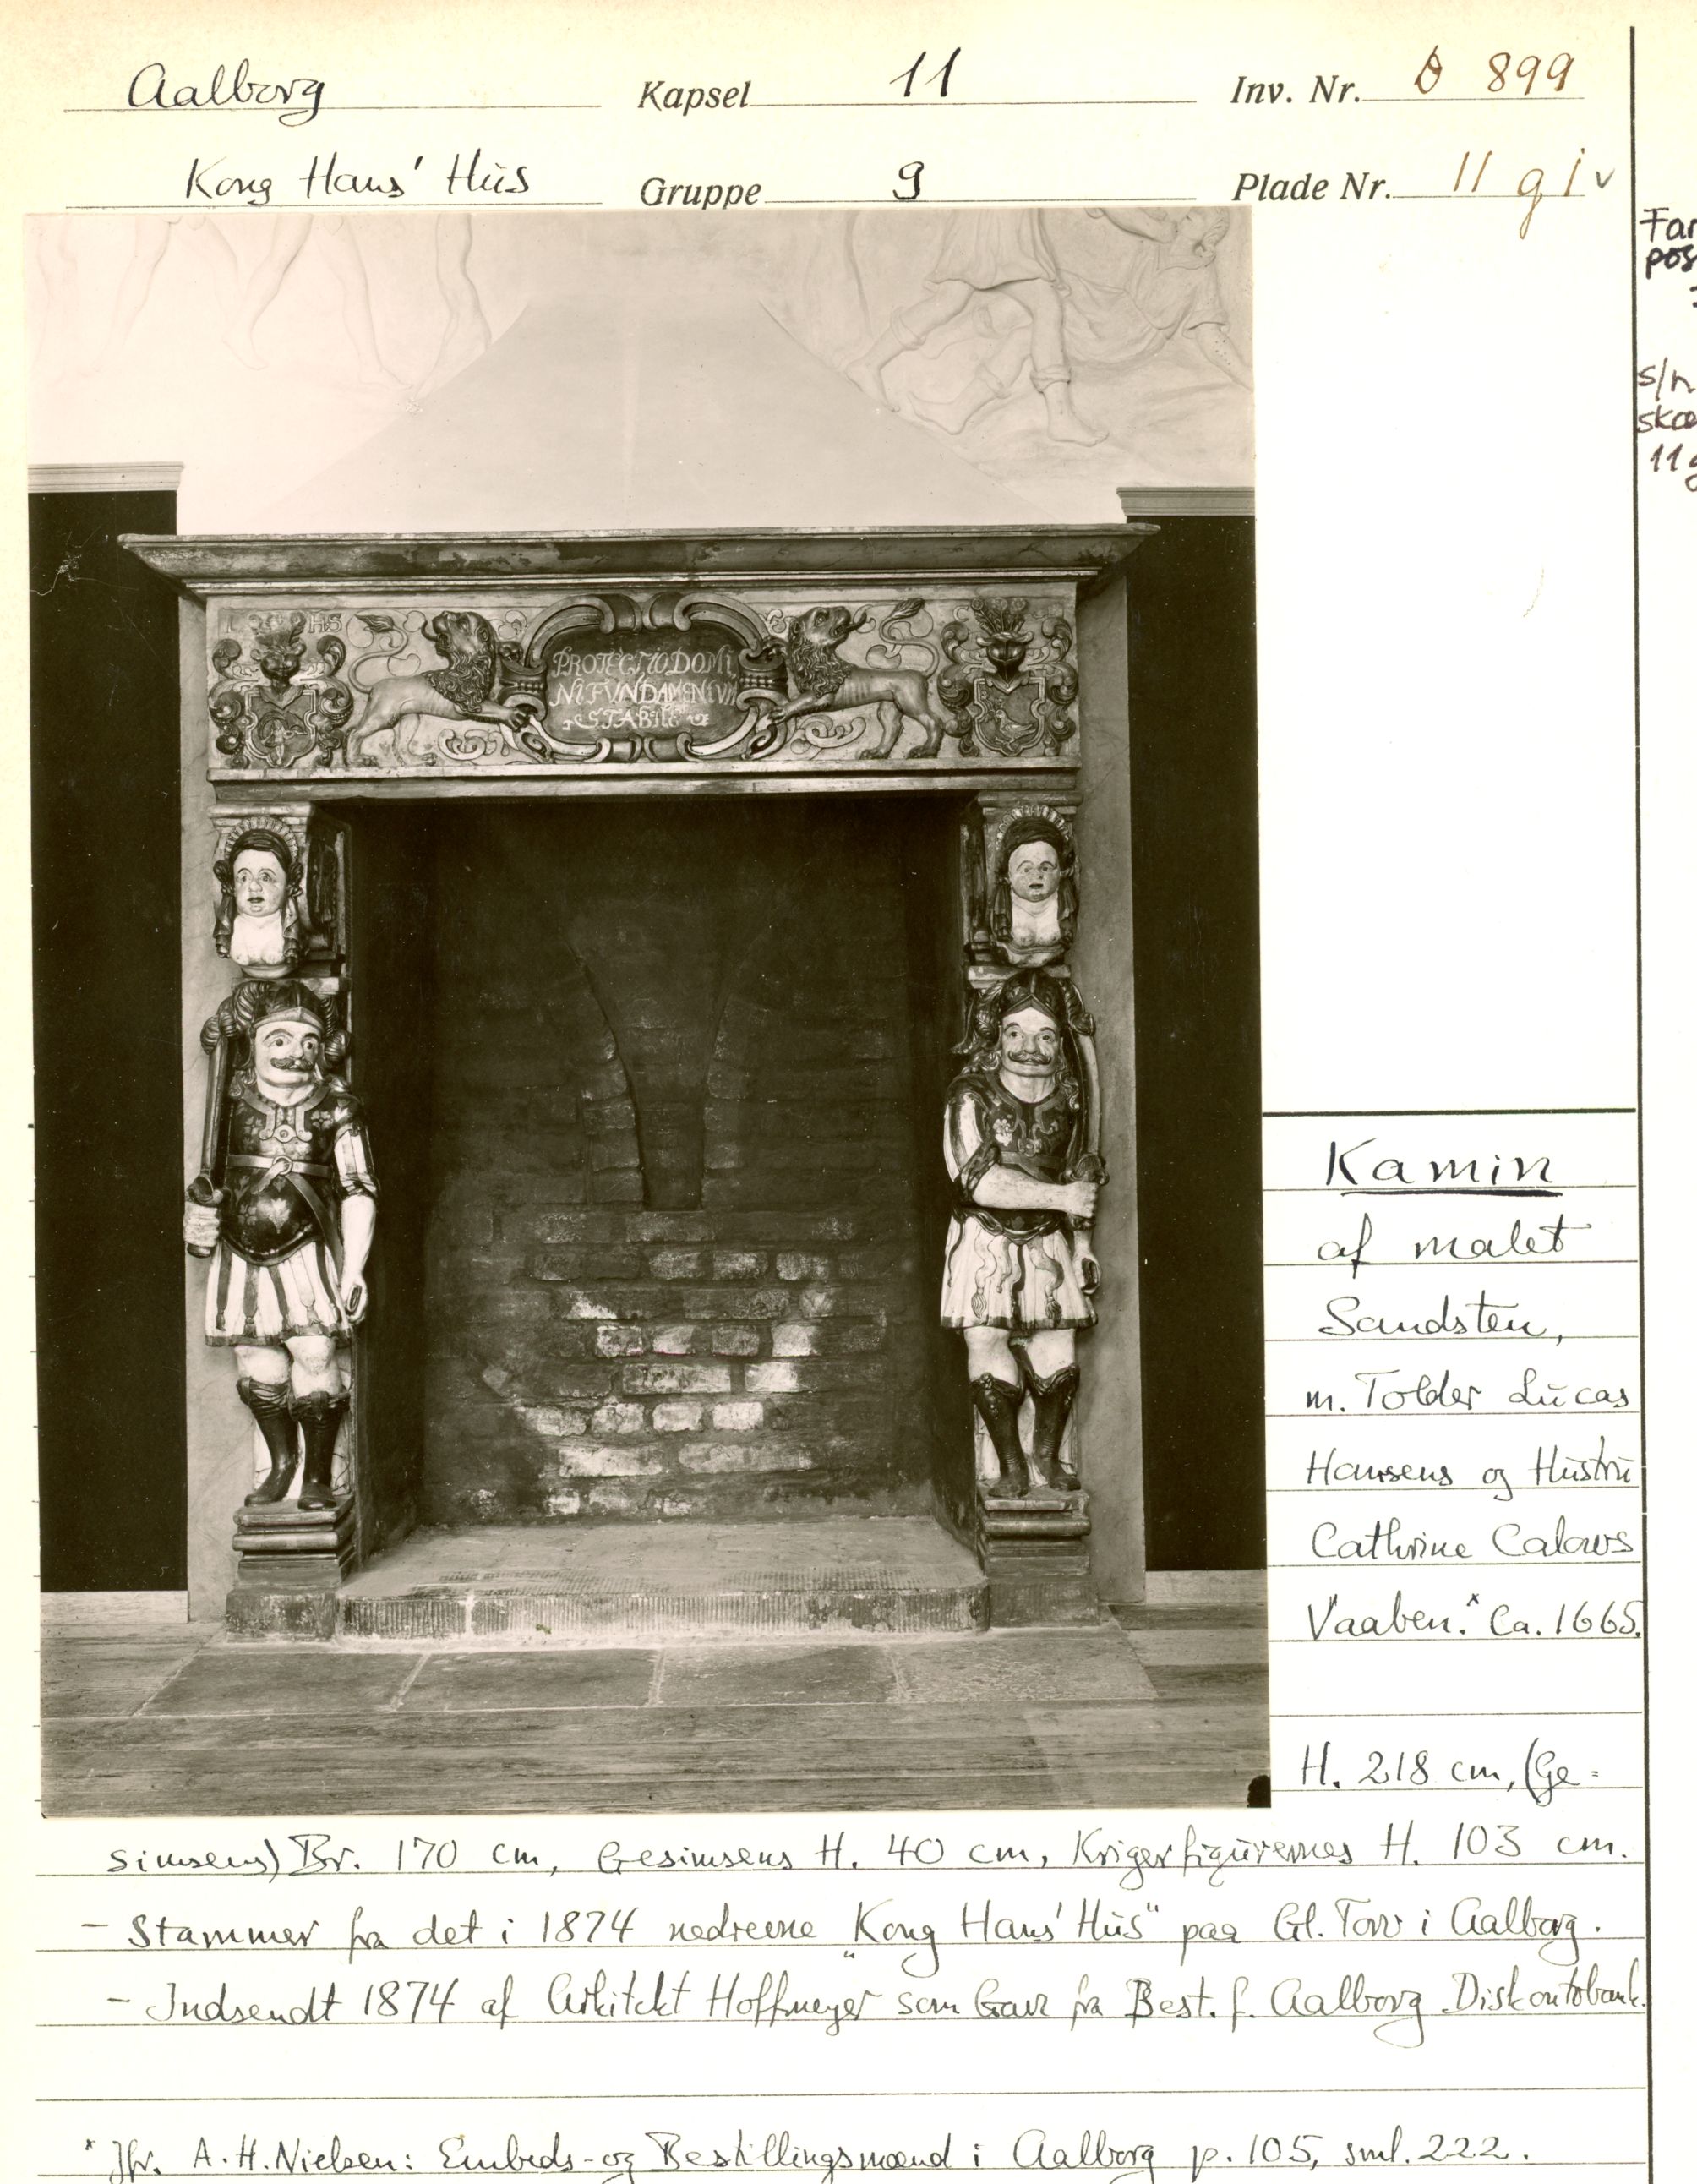 Aalborg Kapsel 11 Inv. Nr. D 899
Kong Hans' Hus Gruppe g Plade Nr. 11 g i v
Far
pos
s/h
skæ
11 g
HS
PROTECTIO DOMI
NI FVNDAMENTVM
STABILE
Kamin
af malet
Sandsten,
m. Tolder Lucas
Hansens og Hustru
Cathrine Calows
Vaaben.* Ca. 1665.
H. 218 cm, (Ge=
simsens) Br. 170 cm, Gesimsens H. 40 cm, Krigerfigurernes H. 103 cm.
- Stammer fra det i 1874 nedrevne "Kong Hans' Hus" paa Gl. Torv i Aalborg.
- Indsendt 1874 af Arkitekt Hoffmeyer som Gave fra Best. f. Aalborg Diskontobank.
* Jfr. A.H. Nielsen: Embeds- og Bestillingsmænd i Aalborg p. 105, sml. 222.